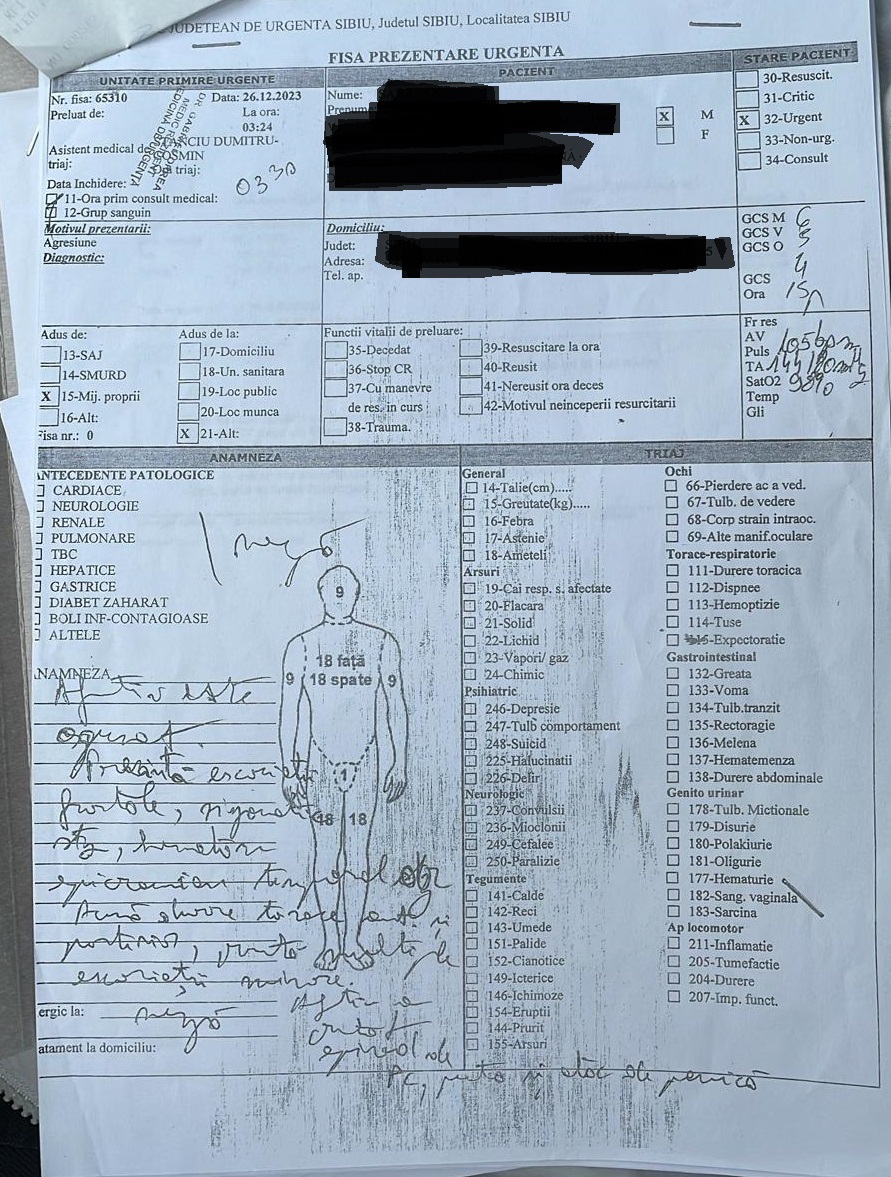 JUDETEAN DE URGENTA SIBIU, Judetul SIBIU, Localitatea SIBIU
FISA PREZENTARE URGENTA
UNITATE PRIMIRE URGENTE
Nr. fisa: 65310 Data: 26.12.2023
Preluat de: La ora:
03:24
Asistent medical de STANCIU DUMITRU-
triaj: COSMIN
triaj:
Data Inchidere: 0330
11-Ora prim consult medical:
12-Grup sanguin
Motivul prezentarii:
Agresiune
Diagnostic:
PACIENT
Nume:
Prenum
X M
F
Domiciliu:
Judet:
Adresa:
Tel. ap.
STARE PACIENT
30-Resuscit.
31-Critic
X 32-Urgent
33-Non-urg.
34-Consult
GCS M 6
GCS V 5
GCS O
4
GCS
Ora 15
Adus de:
13-SAJ
14-SMURD
X 15-Mij. proprii
16-Alt:
Fisa nr.: 0
Adus de la:
17-Domiciliu
18-Un. sanitara
19-Loc public
20-Loc munca
X 21-Alt:
Functii vitalii de preluare:
35-Decedat
36-Stop CR
37-Cu manevre
de res. in curs
38-Trauma.
39-Resuscitare la ora
40-Reusit
41-Nereusit ora deces
42-Motivul neinceperii resurcitarii
Fr res
AV
Puls 105bpm
TA 144/80mmHg
SatO2 98%
Temp
Gli
ANAMNEZA
ANTECEDENTE PATOLOGICE
CARDIACE
NEUROLOGIE
RENALE
PULMONARE
TBC
HEPATICE
GASTRICE
DIABET ZAHARAT
BOLI INF-CONTAGIOASE
ALTELE
neagă
9
18 față
9 18 spate 9
1
18 18
ANAMNEZA
Afirmativ este
agresat.
Prezintă escoriații
frontale, zigomatic
stg, hematom
epicranian temporal
Acuză durere torace ant. și
posterior, prezintă multiple
escoriații minore.
ergic la: neagă
atament la domiciliu:
episod de
TRIAJ
General
14-Talie(cm).....
15-Greutate(kg)....
16-Febra
17-Astenie
18-Ameteli
Arsuri
19-Cai resp. s. afectate
20-Flacara
21-Solid
22-Lichid
23-Vapori/ gaz
24-Chimic
Psihiatric
246-Depresie
247-Tulb comportament
248-Suicid
225-Halucinatii
226-Delir
Neurologic
237-Convulsii
236-Mioclonii
249-Cefalee
250-Paralizie
Tegumente
141-Calde
142-Reci
143-Umede
151-Palide
152-Cianotice
149-Icterice
146-Ichimoze
154-Eruptii
144-Prurit
155-Arsuri
Ochi
66-Pierdere ac a ved.
67-Tulb. de vedere
68-Corp strain intraoc.
69-Alte manif.oculare
Torace-respiratorie
111-Durere toracica
112-Dispnee
113-Hemoptizie
114-Tuse
115-Expectoratie
Gastrointestinal
132-Greata
133-Voma
134-Tulb.tranzit
135-Rectoragie
136-Melena
137-Hematemenza
138-Durere abdominale
Genito urinar
178-Tulb. Mictionale
179-Disurie
180-Polakiurie
181-Oligurie
177-Hematurie
182-Sang. vaginala
183-Sarcina
Ap locomotor
211-Inflamatie
205-Tumefactie
204-Durere
207-Imp. funct.